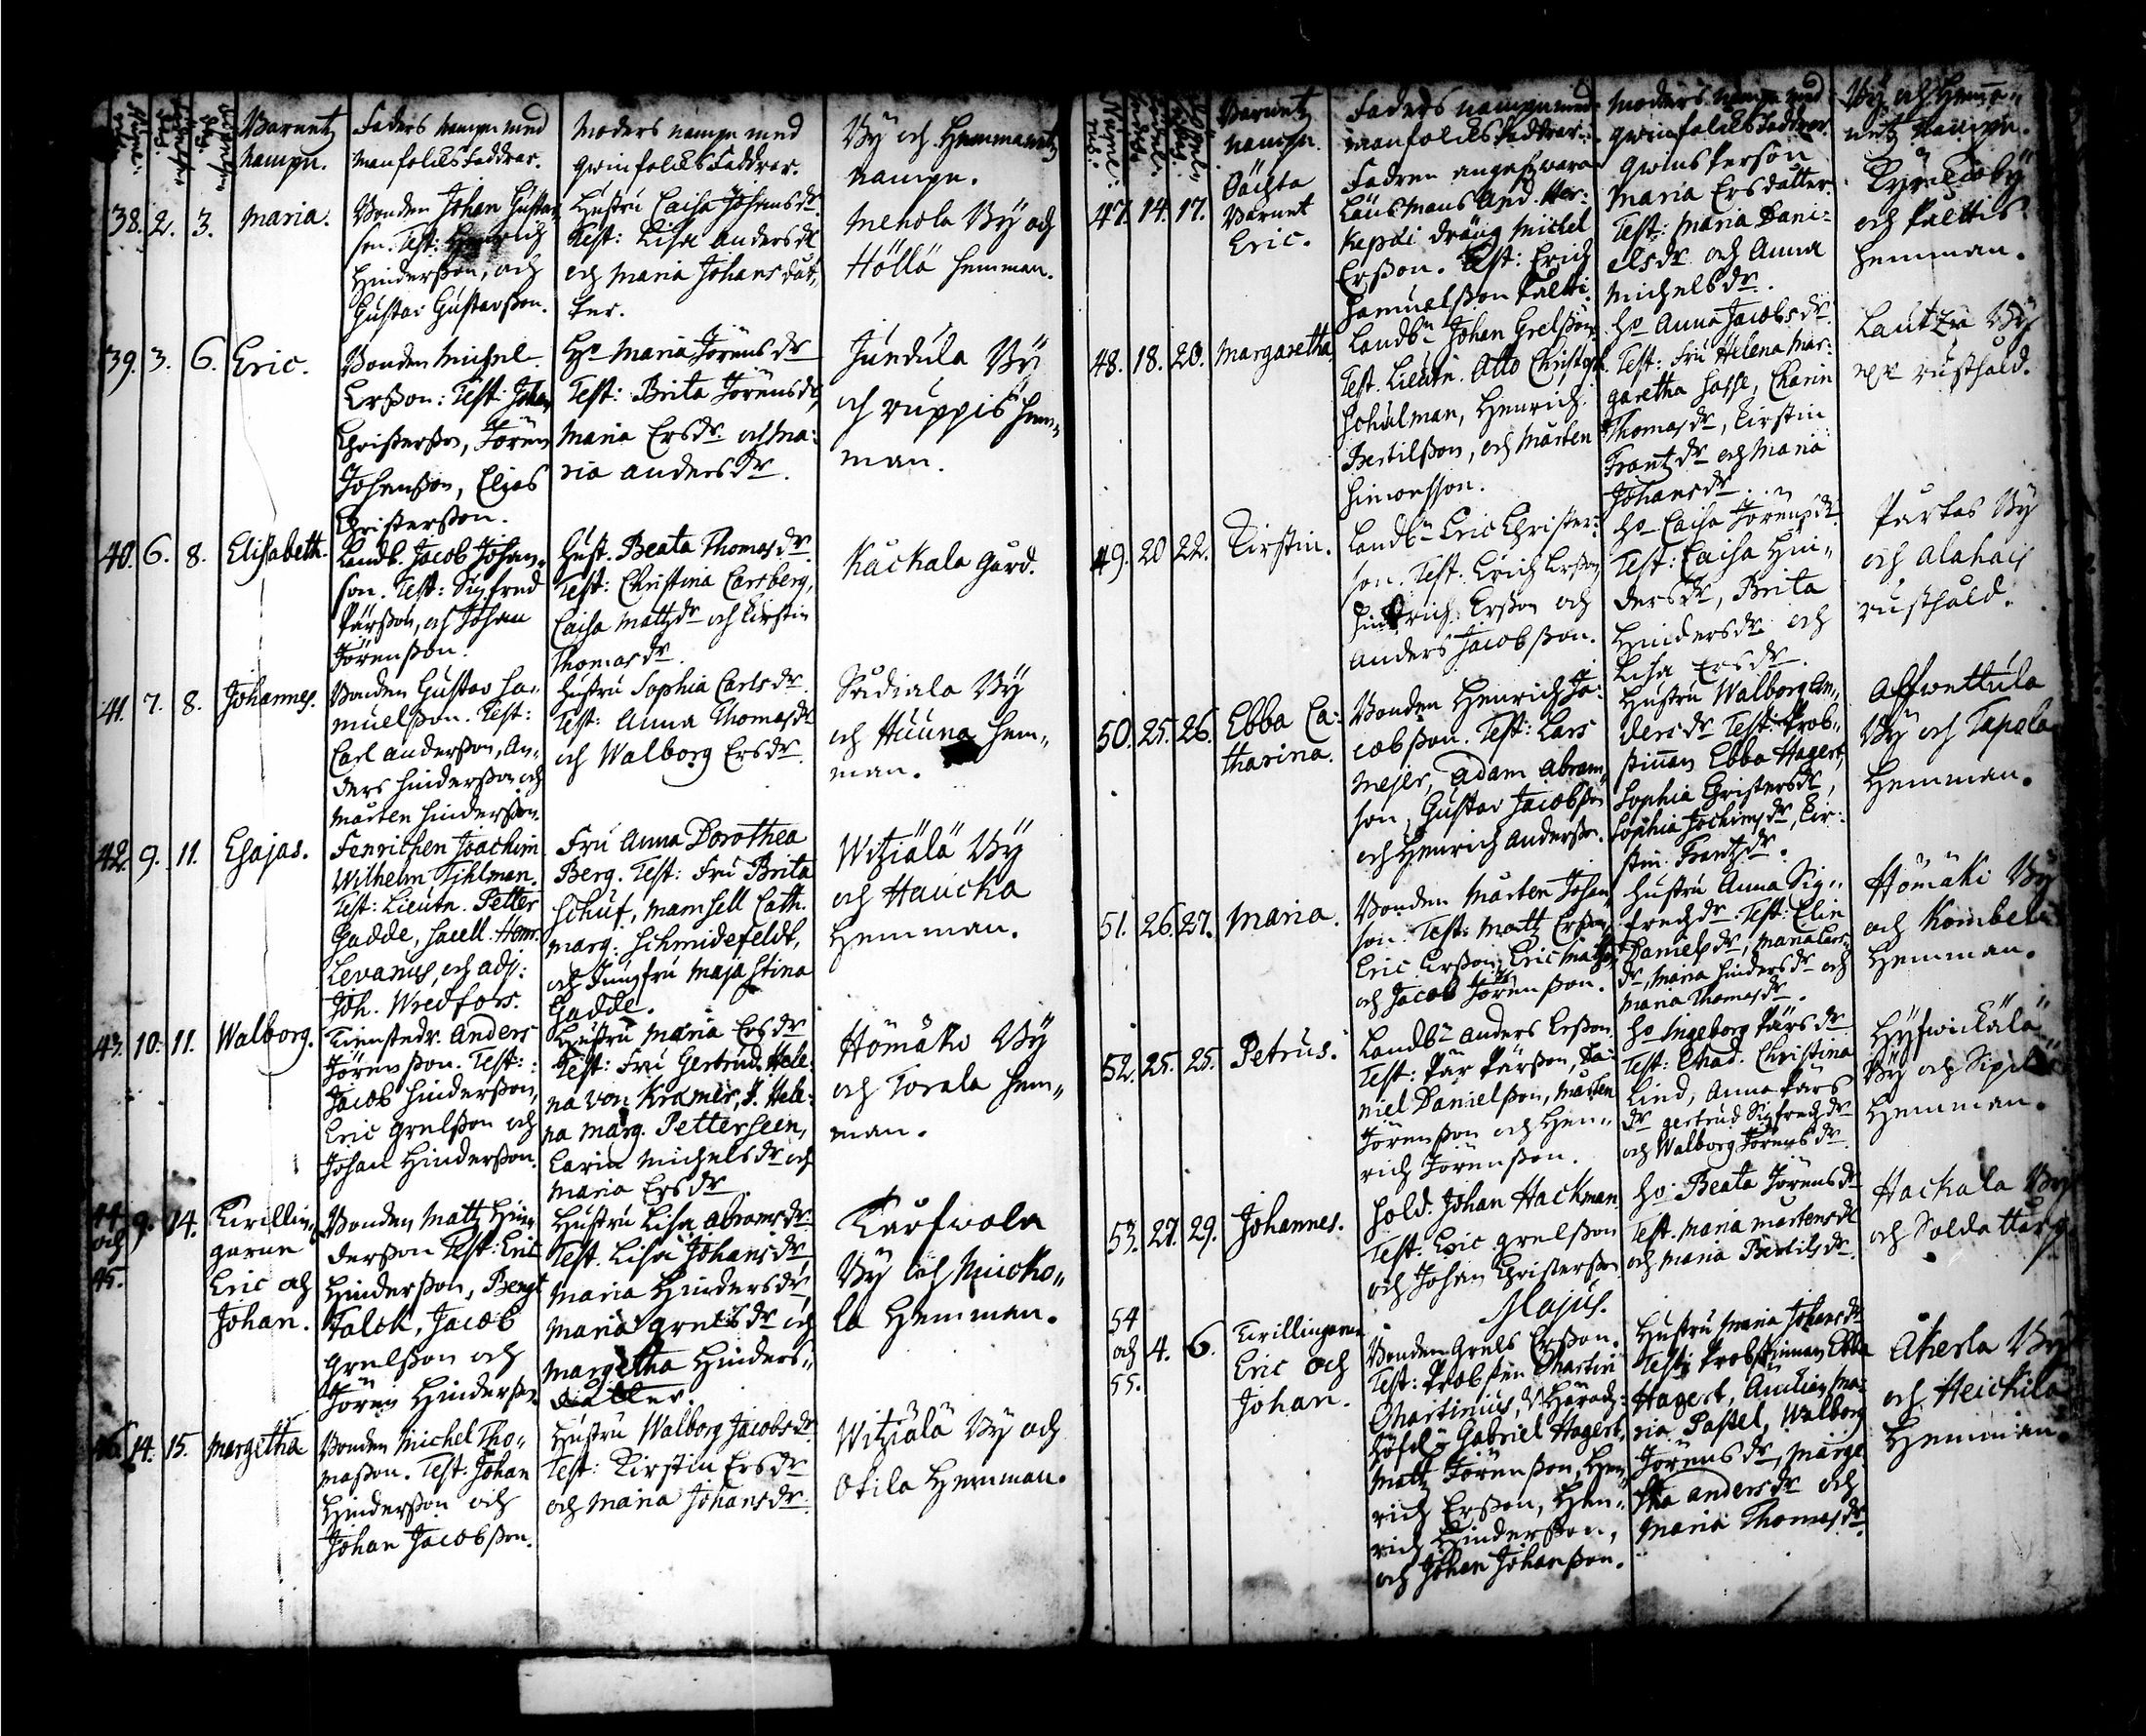 Barnetz
nampn.
Faders nampn med
manfolcks Faddrar.
Moders nampn med
qwinfolcks Faddrar.
By och Hemmanetz
nampn.
38. 2. 3. Maria.
Bonden Johan Gustaf
son. Test: Henrich
Hindersson, och
Gustav Gustavsson.
Hustru Caisa Johansdr.
Test: Lisa Andersdr
och Maria Johansdat,,
ter.
Menola By och
Höllö hemman.
39. 3. 6. Eric.
Bonden Michel
Ersson: Test: Johan
Christersson, Jören
Johansson, Elias
Christersson.
Ho Maria Jörensdr
Test: Brita Jörensdr,
Maria Ersdr. och Ma:
ria Andersdr.
Jundula By
och Ruppis hem,,
man.
40. 6. 8. Elisabeth.
Landb. Jacob Johan,,
son. Test: Sigfred
Pärsson, och Johan
Jörensson.
Hust. Beata Thomasdr
Test: Christina Carlberg,
Caisa Mattzdr och Kirstin
Thomasdr.
Kackala Gård.
41. 7. 8. Johannes.
Bonden Gustav Sa,,
muelsson. Test:
Carl Andersson, An,,
ders Hindersson och
Mårten Hindersson.
Hustru Sophia Carlsdr.
Test: Anna Thomasdr
och Walborg Ersdr.
Sadiala By
och Huuna hem,,
man.
42. 9. 11. Esajas.
Fenrichen Joachim
Wilhelm Tihlman.
Test: Lieutn. Petter
Gadde, Sacell. Henr.
Levanus, och Adj:
Joh. Wredfors.
Fru Anna Dorothea
Berg. Test: Fru Brita
Schuf, Mamsell Cath.
Marg: Schmidefeldt,
och Jungfru Maja Stina
Gadde.
Witziälä By
och Haucka
Hemman.
43. 10. 11. Walborg.
Tienstedr. Anders
Jörensson. Test:
Jacob Hindersson,
Eric Grelsson och
Johan Hindersson.
Hustru Maria Ersdr
Test: Fru Gertrud Hele:
na von Kramer, J. Hele:
na Marg. Petterseen,
Carin Michelsdr och
Maria Ersdr.
Hömäki By
och Torala hem,,
man.
44. och 45. 9. 14.
Twillin,,
garne
Eric och
Johan.
Bonden Mattz Hin,,
dersson Test: Eric
Hindersson, Bengt
Falck, Jacob
Grelsson och
Jören Hindersson
Hustru Lisa Abramsdr.
Test. Lisa Johansdr
Maria Hindersdr
Maria Grelsdr och
Margetha Hinders,,
datter.
Karfwola
By och Micko,,
la Hemman.
46. 14. 15. Margetha
Bonden Michel Tho,,
masson. Test. Johan
Hindersson och
Johan Jacobsson.
Hustru Walborg Jacobsdr
Test: Kirstin Ersdr
och Maria Johansdr.
Witziälä By och
Otila Hemman.
Barnetz
nampn.
Faders nampn med
manfolcks Faddrar.
Moders nampn med
qwinfolcks Faddrar.
By och Hemma,,
netz nampn.
47. 14. 17.
Oächta
Barnet
Eric.
Fadren angafz wara
Länsmans And.
Kepsäi dräng Michel
Ersson. Test: Erich
Samuelsson Paltti.
Qwins Person
Maria Ersdatter.
Test: Maria Dani:
elsdr. och Anna
Michelsdr.
och Palttis
hemman.
48. 18. 20. Margaretha
Landbn Johan Grelsson
Test. Lieutn. Otto Christoph
Schulman, Henrich
Bertilsson, och Mårten
Simonsson.
Ho Anna Jacobsdr.
Test: Fru Helena Mar:
garetha Hasse, Charin
Thomasdr, Kirstin
Frantzdr och Maria
Johansdr.
Rusthåld.
49. 20 22. Kirstin.
Landbn Eric Christer:
son. Test. Erich Ersson,
Hindrich Ersson och
Anders Jacobsson.
Ho Caisa Jörensdr.
Test: Caisa Hin,,
dersdr, Brita
Hindersdr och
Lisa Ersdr.
Partas By
och Alahais
rusthåld.
50. 25. 26. Ebba Ca:
tharina.
Bonden Henrich Ja:
cobsson. Test: Lars
Mejer, Adam Abram,,
son, Gustav Jacobsson
och Henrich Andersson.
Hustru Walborg An,,
dersdr Test: Prob,,
stinnan Ebba Hagert,
Sophia Christersdr,
Sophia Jochimsdr, Kir:
stin Frantzdr.
Affwettula
By och Tapola
Hemman.
51. 26. 27. Maria.
Bonden Mårten Johan,,
son. Test: Matt Ersson,
Eric Ersson, Eric Matsson
och Jacob Jörensson.
Hustru Anna Sig,,
fredsdr Test: Elin
Danielsdr, Maria Lars
dr, Maria Hindersdr och
Maria Thomasdr.
Hömäki By
och Kombela
Hemman.
52. 25. 25. Petrus.
Landbn Anders Ersson
Test: Pär Pärsson, Da:
niel Danielsson, Mårten
Jörensson och Hen,,
rich Jörensson.
Ho Ingeborg Pärsdr
Test: Mad. Christina
Lind, Anna Pärs
dr Gertrud Sigfredsdr
och Walborg Jörensdr.
Hyfwickälä
By och Sipilä
Hemman.
53. 27. 29. Johannes.
Sold. Johan Hackman
Test: Eric Grelsson
och Johan Christersson
Ho Beata Jörensdr
Test. Maria Mårtensdr
och Maria Bertilsdr.
Hackala By
och Soldattorp.
Majus.
54
och
55.
4. 6.
Twillingarne
Eric och
Johan.
Bonden Grels Ersson.
Test: Probsten Martin
Martinius, Härads,,
höfd. Gabriel Hagert,
Mattz Jörensson, Hen,,
rich Ersson, Hen,,
rich Hindersson,
och Johan Johansson.
Hustru Maria Johansdr
Test: Probstinnan Ebba
Hagert, Ma:
ria Passel, Walborg
Jörensdr, Marge
tha Andersdr och
Maria Thomasdr.
Akerla By
och Heickilä
Hemman.